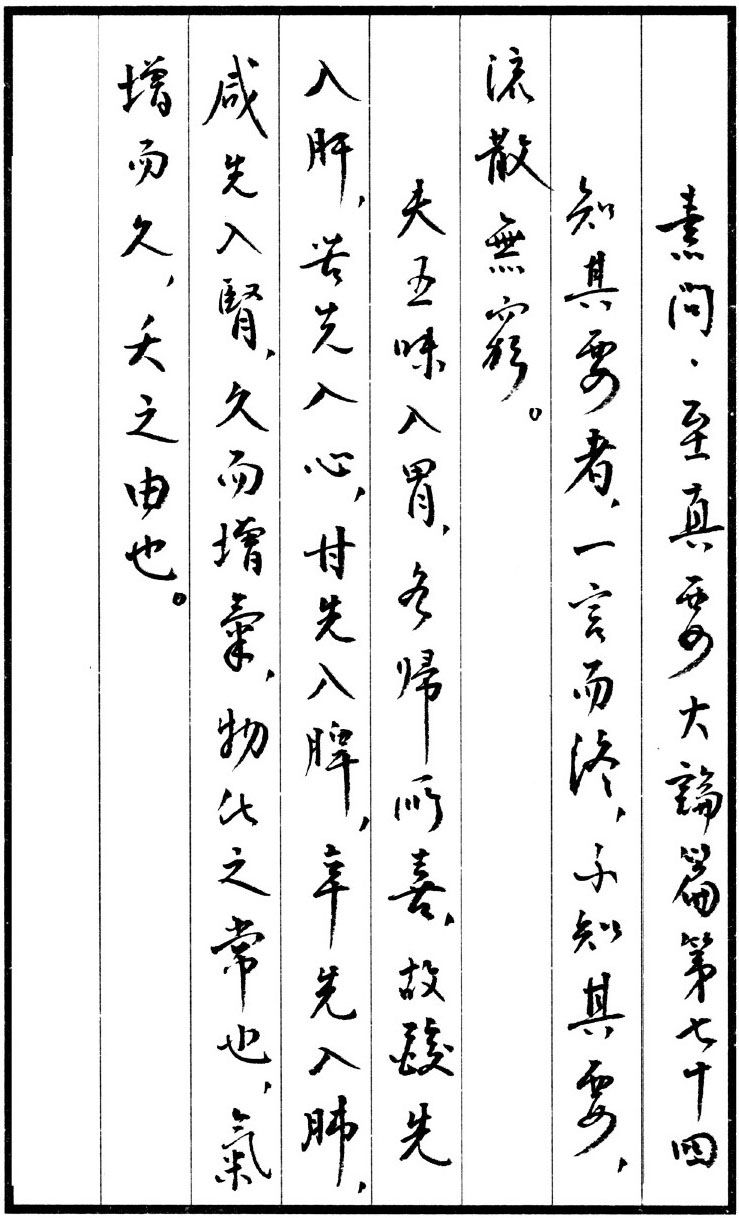 素問·至真要大論篇第七十四
知其要者，一言而終，不知其要，
流散無窮。
夫五味入胃，各歸所喜，故酸先
入肝，苦先入心，甘先入脾，辛先入肺，
咸先入腎，久而增氣，物化之常也，氣
增而久，夭之由也。